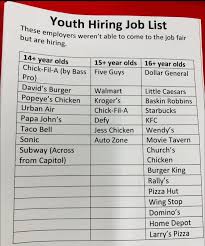 Youth Hiring Job List
These employers weren't able to come to the job fair
but are hiring.
14+ year olds 15+ year olds 16+ year olds
Chick-Fil-A (by Bass Pro) Five Guys Dollar General
David's Burger Walmart Little Caesars
Popeye's Chicken Kroger's Baskin Robbins
Urban Air Chick-Fil-A Starbucks
Papa John's Defy KFC
Taco Bell Jess Chicken Wendy's
Sonic Auto Zone Movie Tavern
Subway (Across from Capitol) Church's Chicken
Burger King
Rally's
Pizza Hut
Wing Stop
Domino's
Home Depot
Larry's Pizza